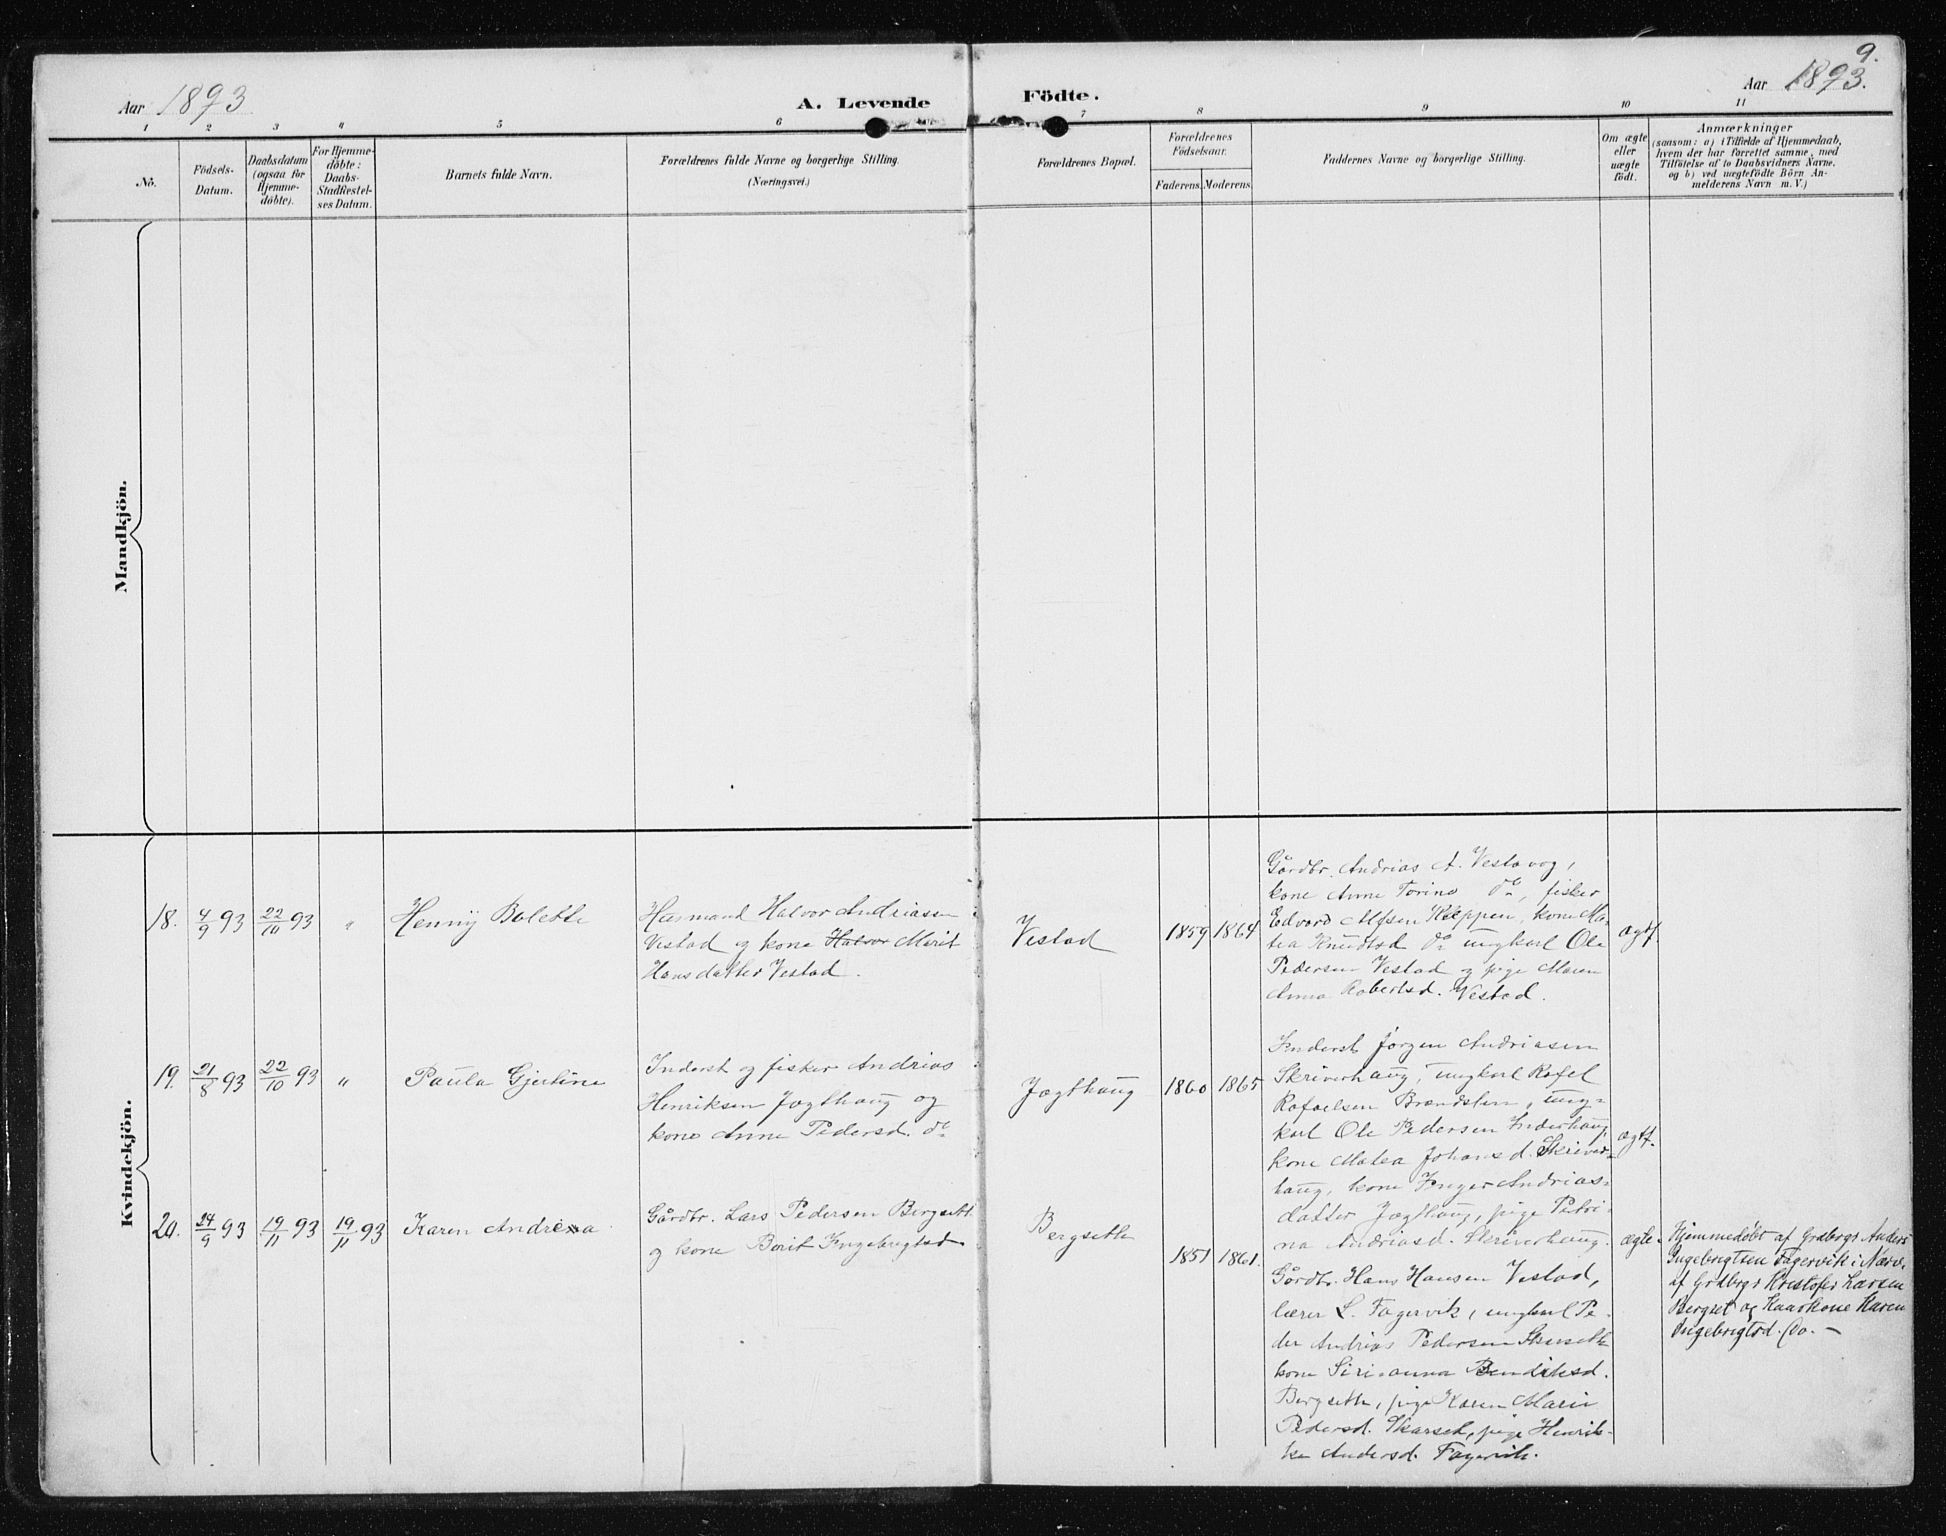 9.
Aar 1893
A. Levende Födte.
Aar 1893.
1 2 3 4 5 6 7 8 9 10 11
No.
Födsels-
Datum.
Daabsdatum
(ogsaa for
Hjemme-
döbte).
For Hjemme-
döbte:
Daabs-
Stadfestel-
ses Datum.
Barnets fulde Navn.
Forældrenes fulde Navne og borgerlige Stilling.
(Næringsvei.)
Forældrenes Bopæl.
Forældrenes
Födselsaar.
Faderens. Moderens.
Faddernes Navne og borgerlige Stilling.
Om ægte
eller
uægte
födt.
Anmærkninger
(saasom: a) i Tilfælde af Hjemmedaab,
hvem der har forrettet samme, med
Tilföielse af to Daabsvidners Navne.
og b) ved uægtefödte Börn An-
melderens Navn m. V.)
Mandkjön.
Kvindekjön.
18. 4/9 93 22/10 93 " Henny Bolette
Husmand Halvor Andriasen
Vestad og kone Halvor Marit
Hansdatter Vestad.
Vestad 1859 1864
Gårdbr. Andrias A. Vestavog,
kone Anne Torine do, fisker
Edvard Alfsen Kleppen, kone Ma-
tea Knudtsd do ungkarl Ole
Pedersen Vestad og pige Maren
Anna Robertsd. Vestad.
ægtf.
19. 21/8 93 22/10 93 " Paula Gjertine
Inderst og fisker Andrias
Henriksen Jagthaug og
kone Anne Pedersd. do
Jagthaug 1860 1865
Inderst Jørgen Andriasen
Skriverhaug, ungkarl Rafel
Rafaelsen Brendsten, ung-
karl Ole Pedersen Inderhaug,
kone Matea Johansd. Skriver-
haug, kone Inger Andrias-
datter Jagthaug, pige Petri-
na Andriasd. Skriverhaug.
ægtf.
20. 24/9 93 19/11 93 19/11 93 Karen Andrea
Gårdbr. Lars Pedersen Bergseth
og kone Borit Ingebrigtsd.
Bergseth 1851 1861.
Gårdbr. Hans Hansen Vestad,
lærer L. Fagervik, ungkarl Pe-
der Andrias Pedersen
kone Sirianna Bendiksd.
Bergseth, pige Karen Marie
Pedersd. Skarset, pige Henrik-
ke Andersd. Fagervik.
ægte.
Hjemmedøbt af Grdbrgr Anders
Ingebrigtsen Fagervik i Nærv.
af Grdbrgr Kristofer Larsen
Bergset og Huuskone Karen
Ingebrigtsd. do. –